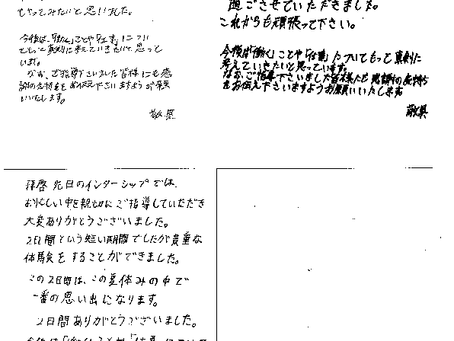 もやってみたいと思いました。
今後は、「働く」ことや「仕事」について
もっと真剣に考えていきたいと思って
います。
なお、ご指導下さいました皆様にも感
謝の気持ちをお伝え下さいますようお願
いいたします。
敬具
過ごさせていただきました。
これからも頑張って下さい。
今後は「働く」ことや「仕事」についてもっと真剣に
考えていきたいと思っています。
なお、ご指導下さいました皆様にも感謝の気持ち
をお伝え下さいますようお願いいたします
敬具
拝啓 先日のインターンシップでは、
お忙しい中を親切にご指導していただき
大変ありがとうございました。
2日間という短い期間でしたが貴重な
体験をすることができました。
この2日間は、この夏休みの中で
一番の思い出になります。
2日間ありがとうございました。